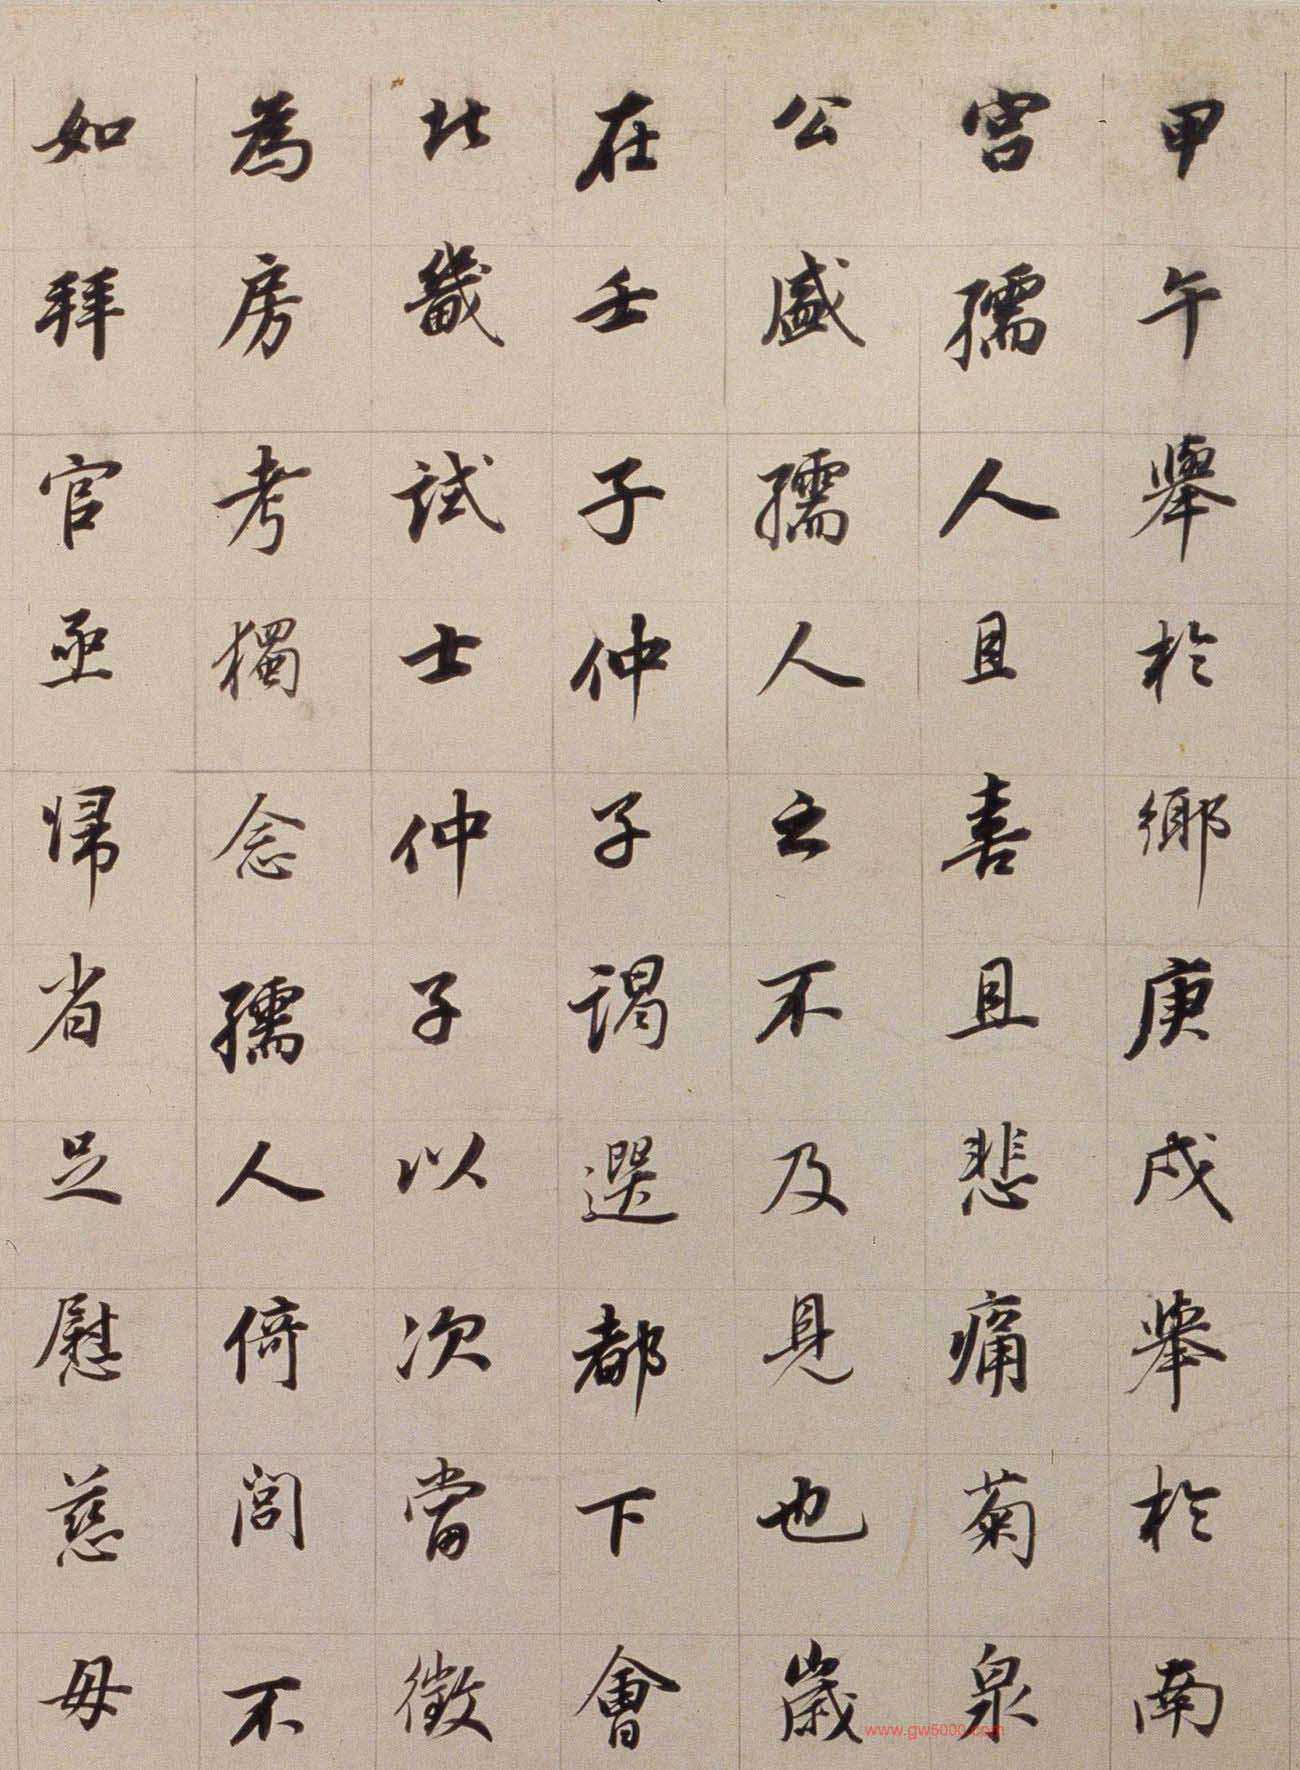 甲午舉於鄉庚戌舉於南
宮孺人且喜且悲痛菊泉
公盛孺人之不及見也歲
在壬子仲子謁選都下會
北畿試士仲子以次當徵
為房考獨念孺人倚閭不
如拜官亟歸省足慰慈母
www.gw5000.com